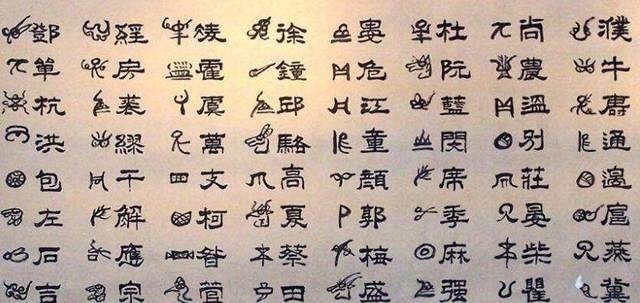 濮牛壽通邊扈燕冀
尚農溫別莊晏柴瞿
杜阮藍閔席季麻强
婁危江童顏郭梅盛
徐鐘邱駱高夏蔡田
凌霍虞萬支柯昝管
經房裘繆干解應宗
鄧單杭洪包左石吉